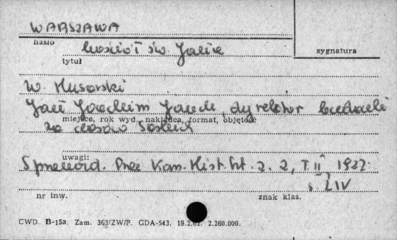 WARSZAWA
hasło
kościół św. Jacka
sygnatura
tytuł
W. Husarski
Jan Joachim Jauch dyrektor budowli
miejsce, rok wyd., nakładca, format, objętość
za czasów Saskich
uwagi:
Sprawozd. Prac Kom. Hist. Szt. z. 2, T II 1922
s. LIV
nr inw.
znak klas.
CWD. B-15a. Zam. 363/ZW/P. GDA-543. 19.2.62. 2.260.000.